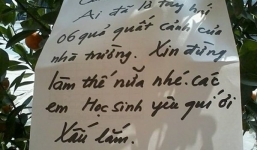 Ai đã là tuy hái
06 quả quất cảnh của
nhà trường. Xin đừng
làm thế nữa nhé. các
em Học sinh yêu quí ơi
Xấu lắm.